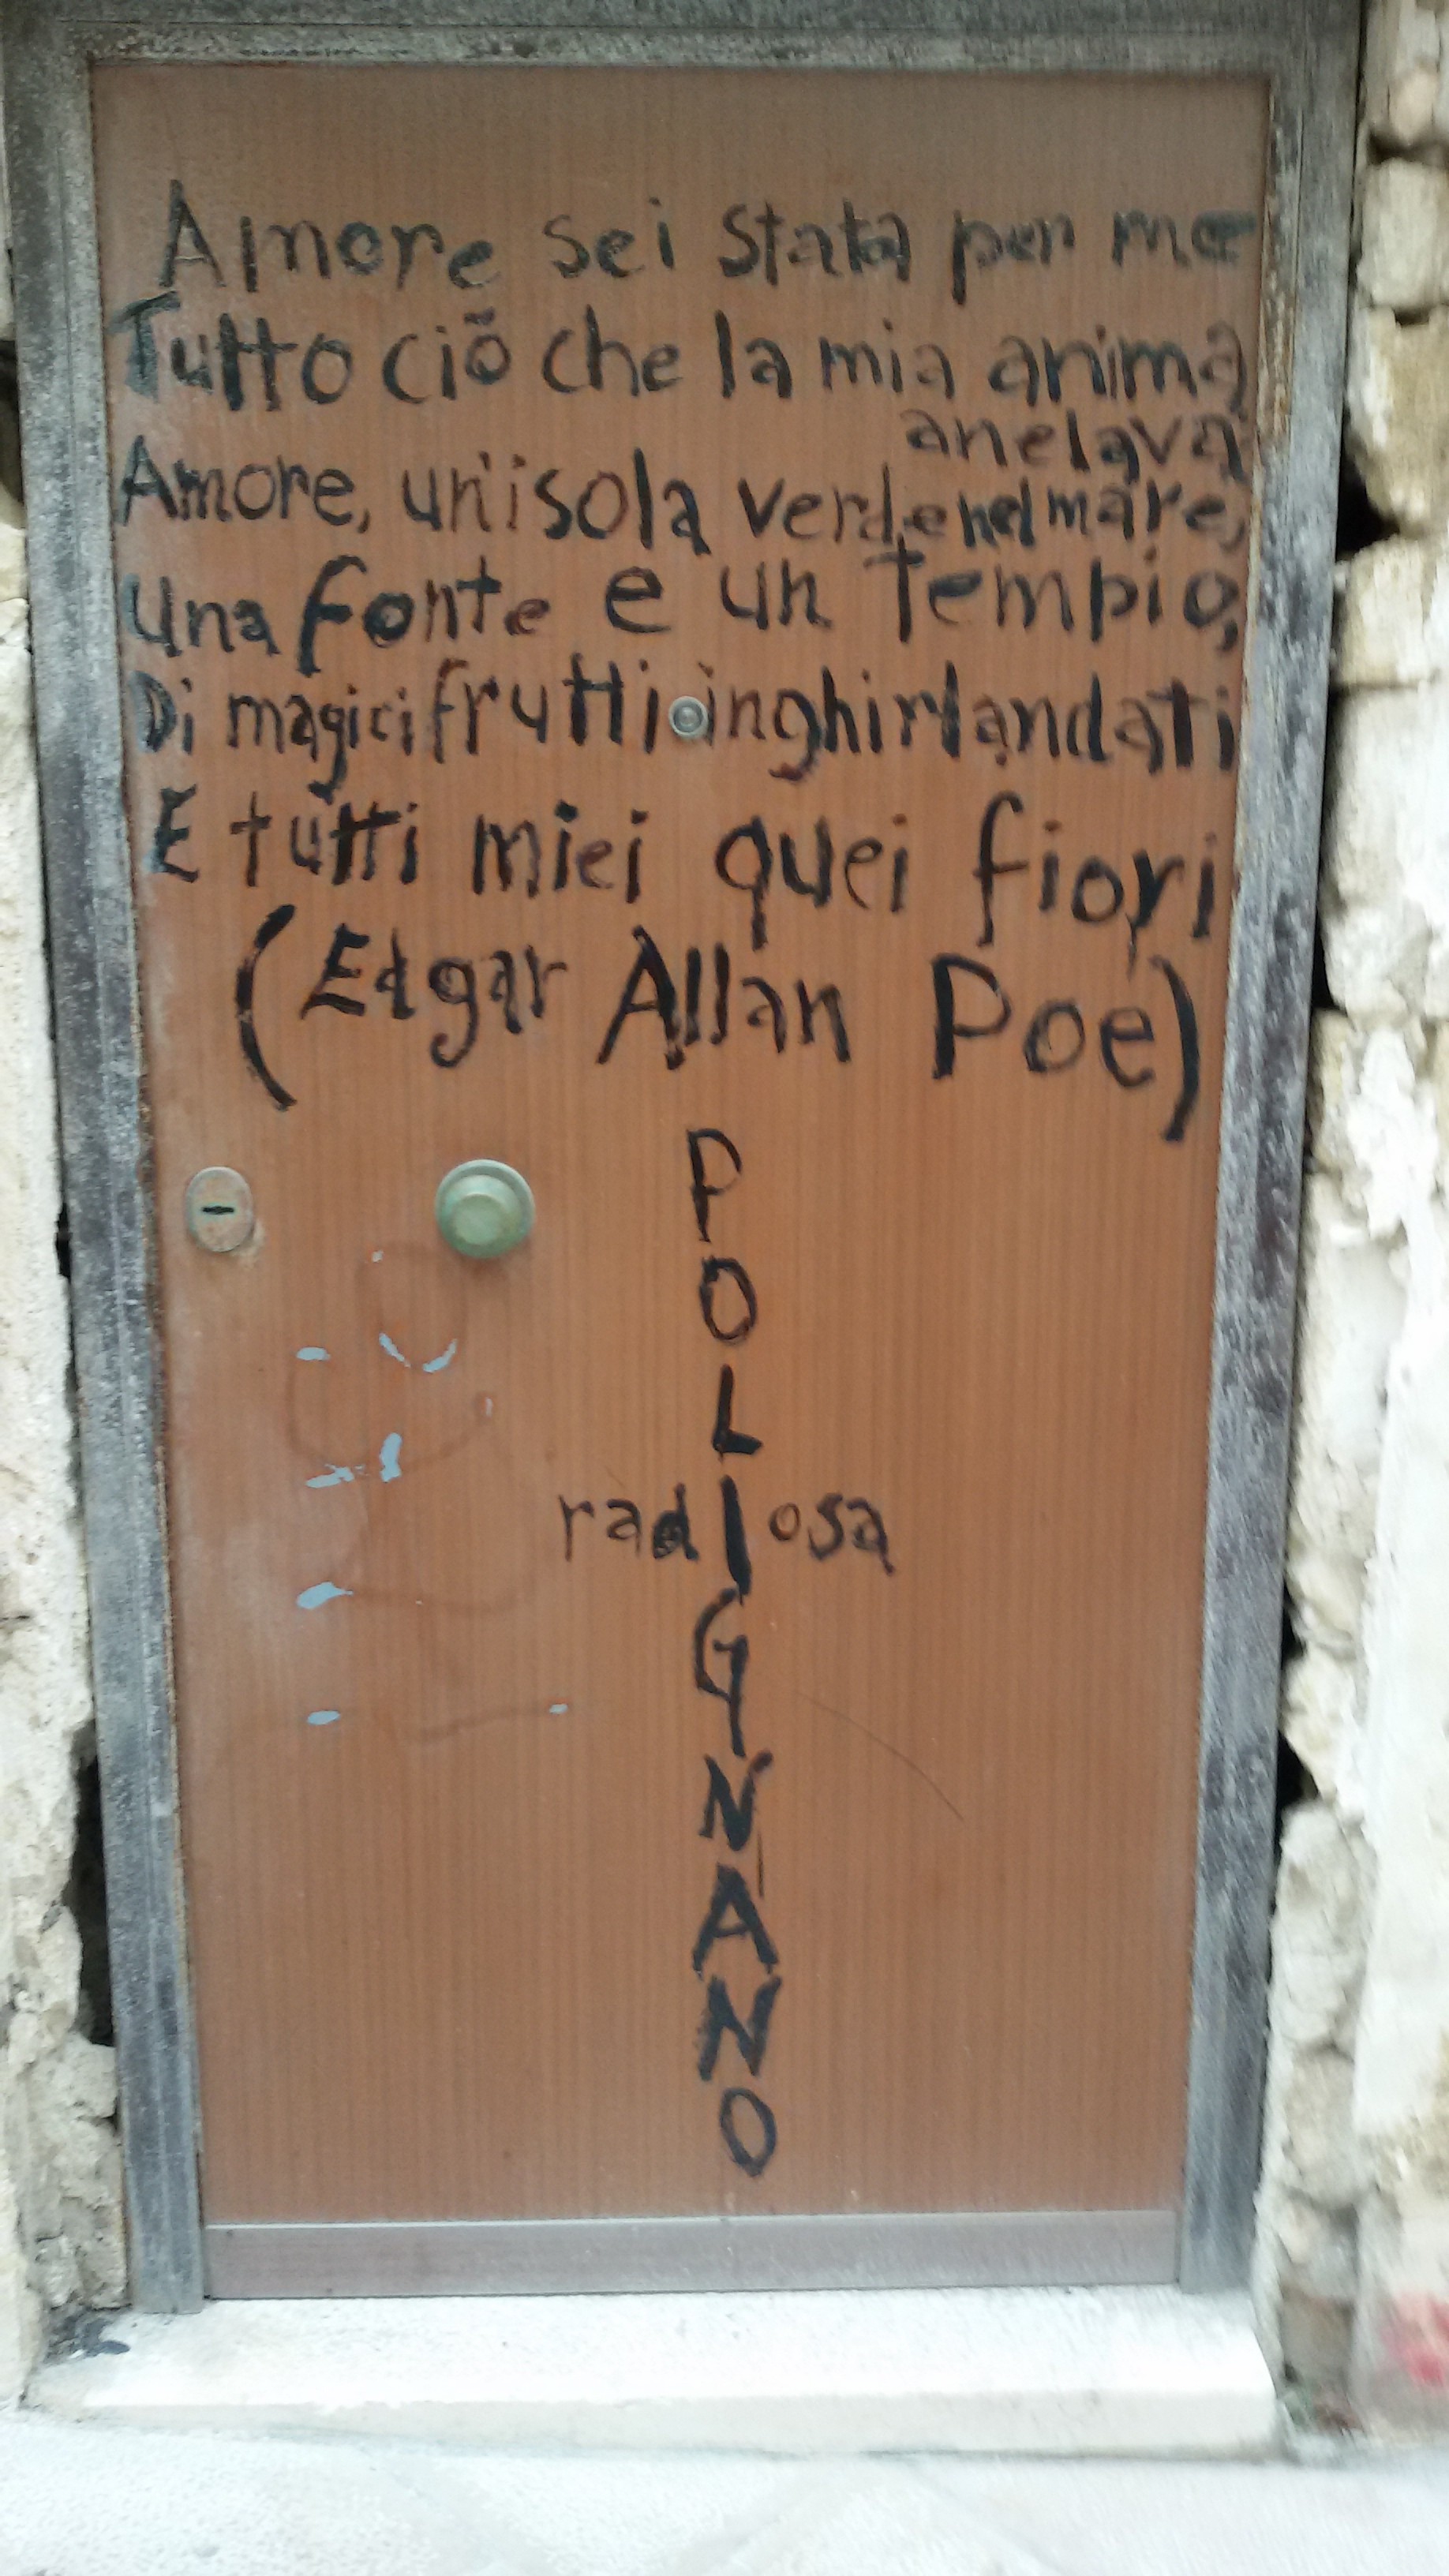 Amore sei stata per me
Tutto ciò che la mia anima
anelava
Amore, un'isola verde nel mare,
una fonte e un tempio,
Di magici frutti inghirlandati
E tutti miei quei fiori
(Edgar Allan Poe)
POLIGNANO
radIosa